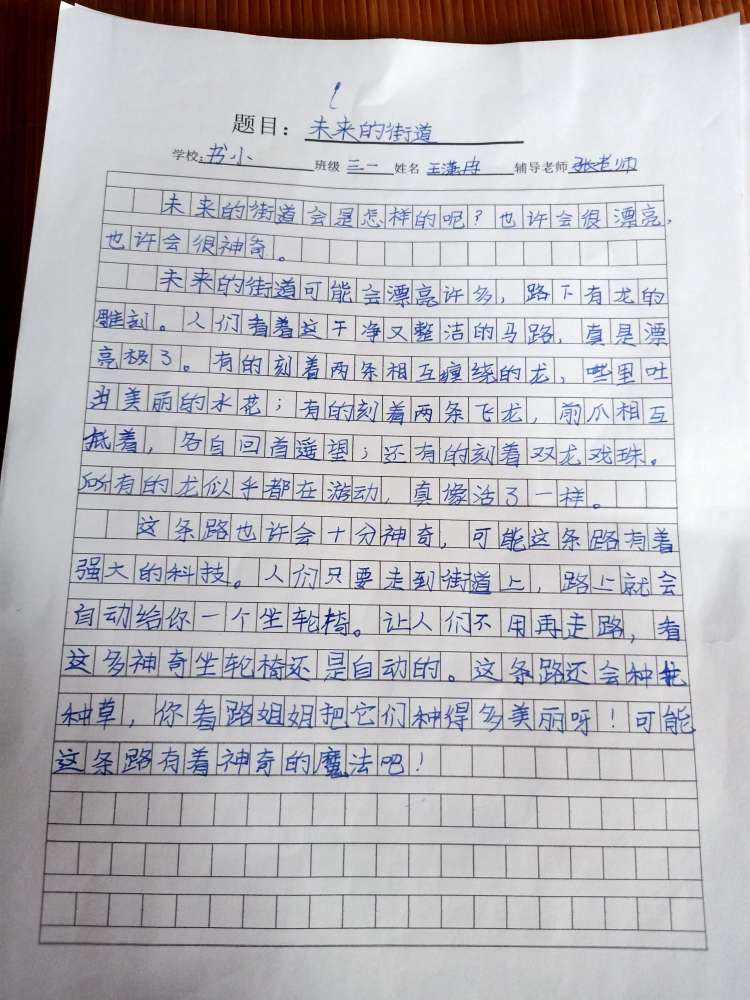 题目：未来的街道
学校：书小 班级 三一 姓名 王潇冉 辅导老师 张老师
未来的街道会是怎样的呢？也许会很漂亮，
也许会很神奇。
未来的街道可能会漂亮许多，路下有龙的
雕刻。人们看着这干净又整洁的马路，真是漂
亮极了。有的刻着两条相互缠绕的龙，嘴里吐
出美丽的水花；有的刻着两条飞龙，前爪相互
抵着，各自回首遥望；还有的刻着双龙戏珠。
所有的龙似乎都在游动，真像活了一样。
这条路也许会十分神奇，可能这条路有着
强大的科技。人们只要走到街道上，路上就会
自动给你一个坐轮椅。让人们不用再走路，看
这多神奇坐轮椅还是自动的。这条路还会种花
种草，你看路姐姐把它们种得多美丽呀！可能
这条路有着神奇的魔法吧！